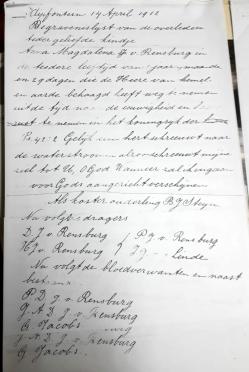 Kleyfontern 14 April 1912
Begravenislyst van de overleden
teder geliefde kindje
Anna Magdalena J. v. Rensburg in
de teedere leeftyd van jaar maande
en 29 dagen die de Heere van hemel
en aarde behaagd heeft weg te nemen
uit de tyd na de euwigheid en
te nemen in het koningryk der
Ps. 42:2 Gelyk een hert schreeuwt naar
de waterstroomen alzoo schreeuwt myne
ziel tot U, O God Wanneer zal ik ingaan
voor Gods aangezicht verschynen
Als koster ouderling B J Steyn
Nu volgt de dragers
D. J. v. Rensburg P J v. Rensburg
H J v. Rensburg
Nu volgt de bloedverwanten en naast
P D J v. Rensburg
J. A D J v. Rensburg
C Jacobs
J. A D J v. Rensburg
G Jacobs